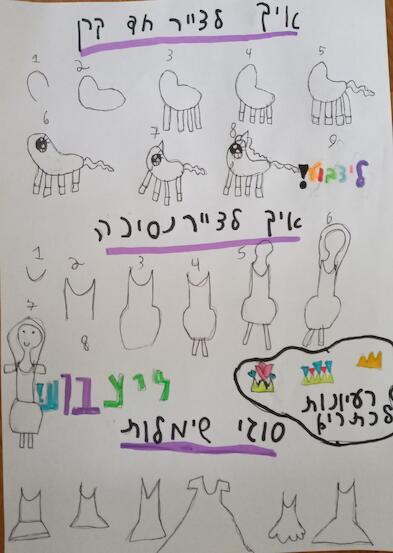 איך לצייר חד קרן
1 2 3 4 5
6 7 8 9
לצבוע!
איך לצייר נסיכה
1 2 3 4 5 6
7 8
ליצבוע
רעיונות
לכתרים
סוגי שימלות